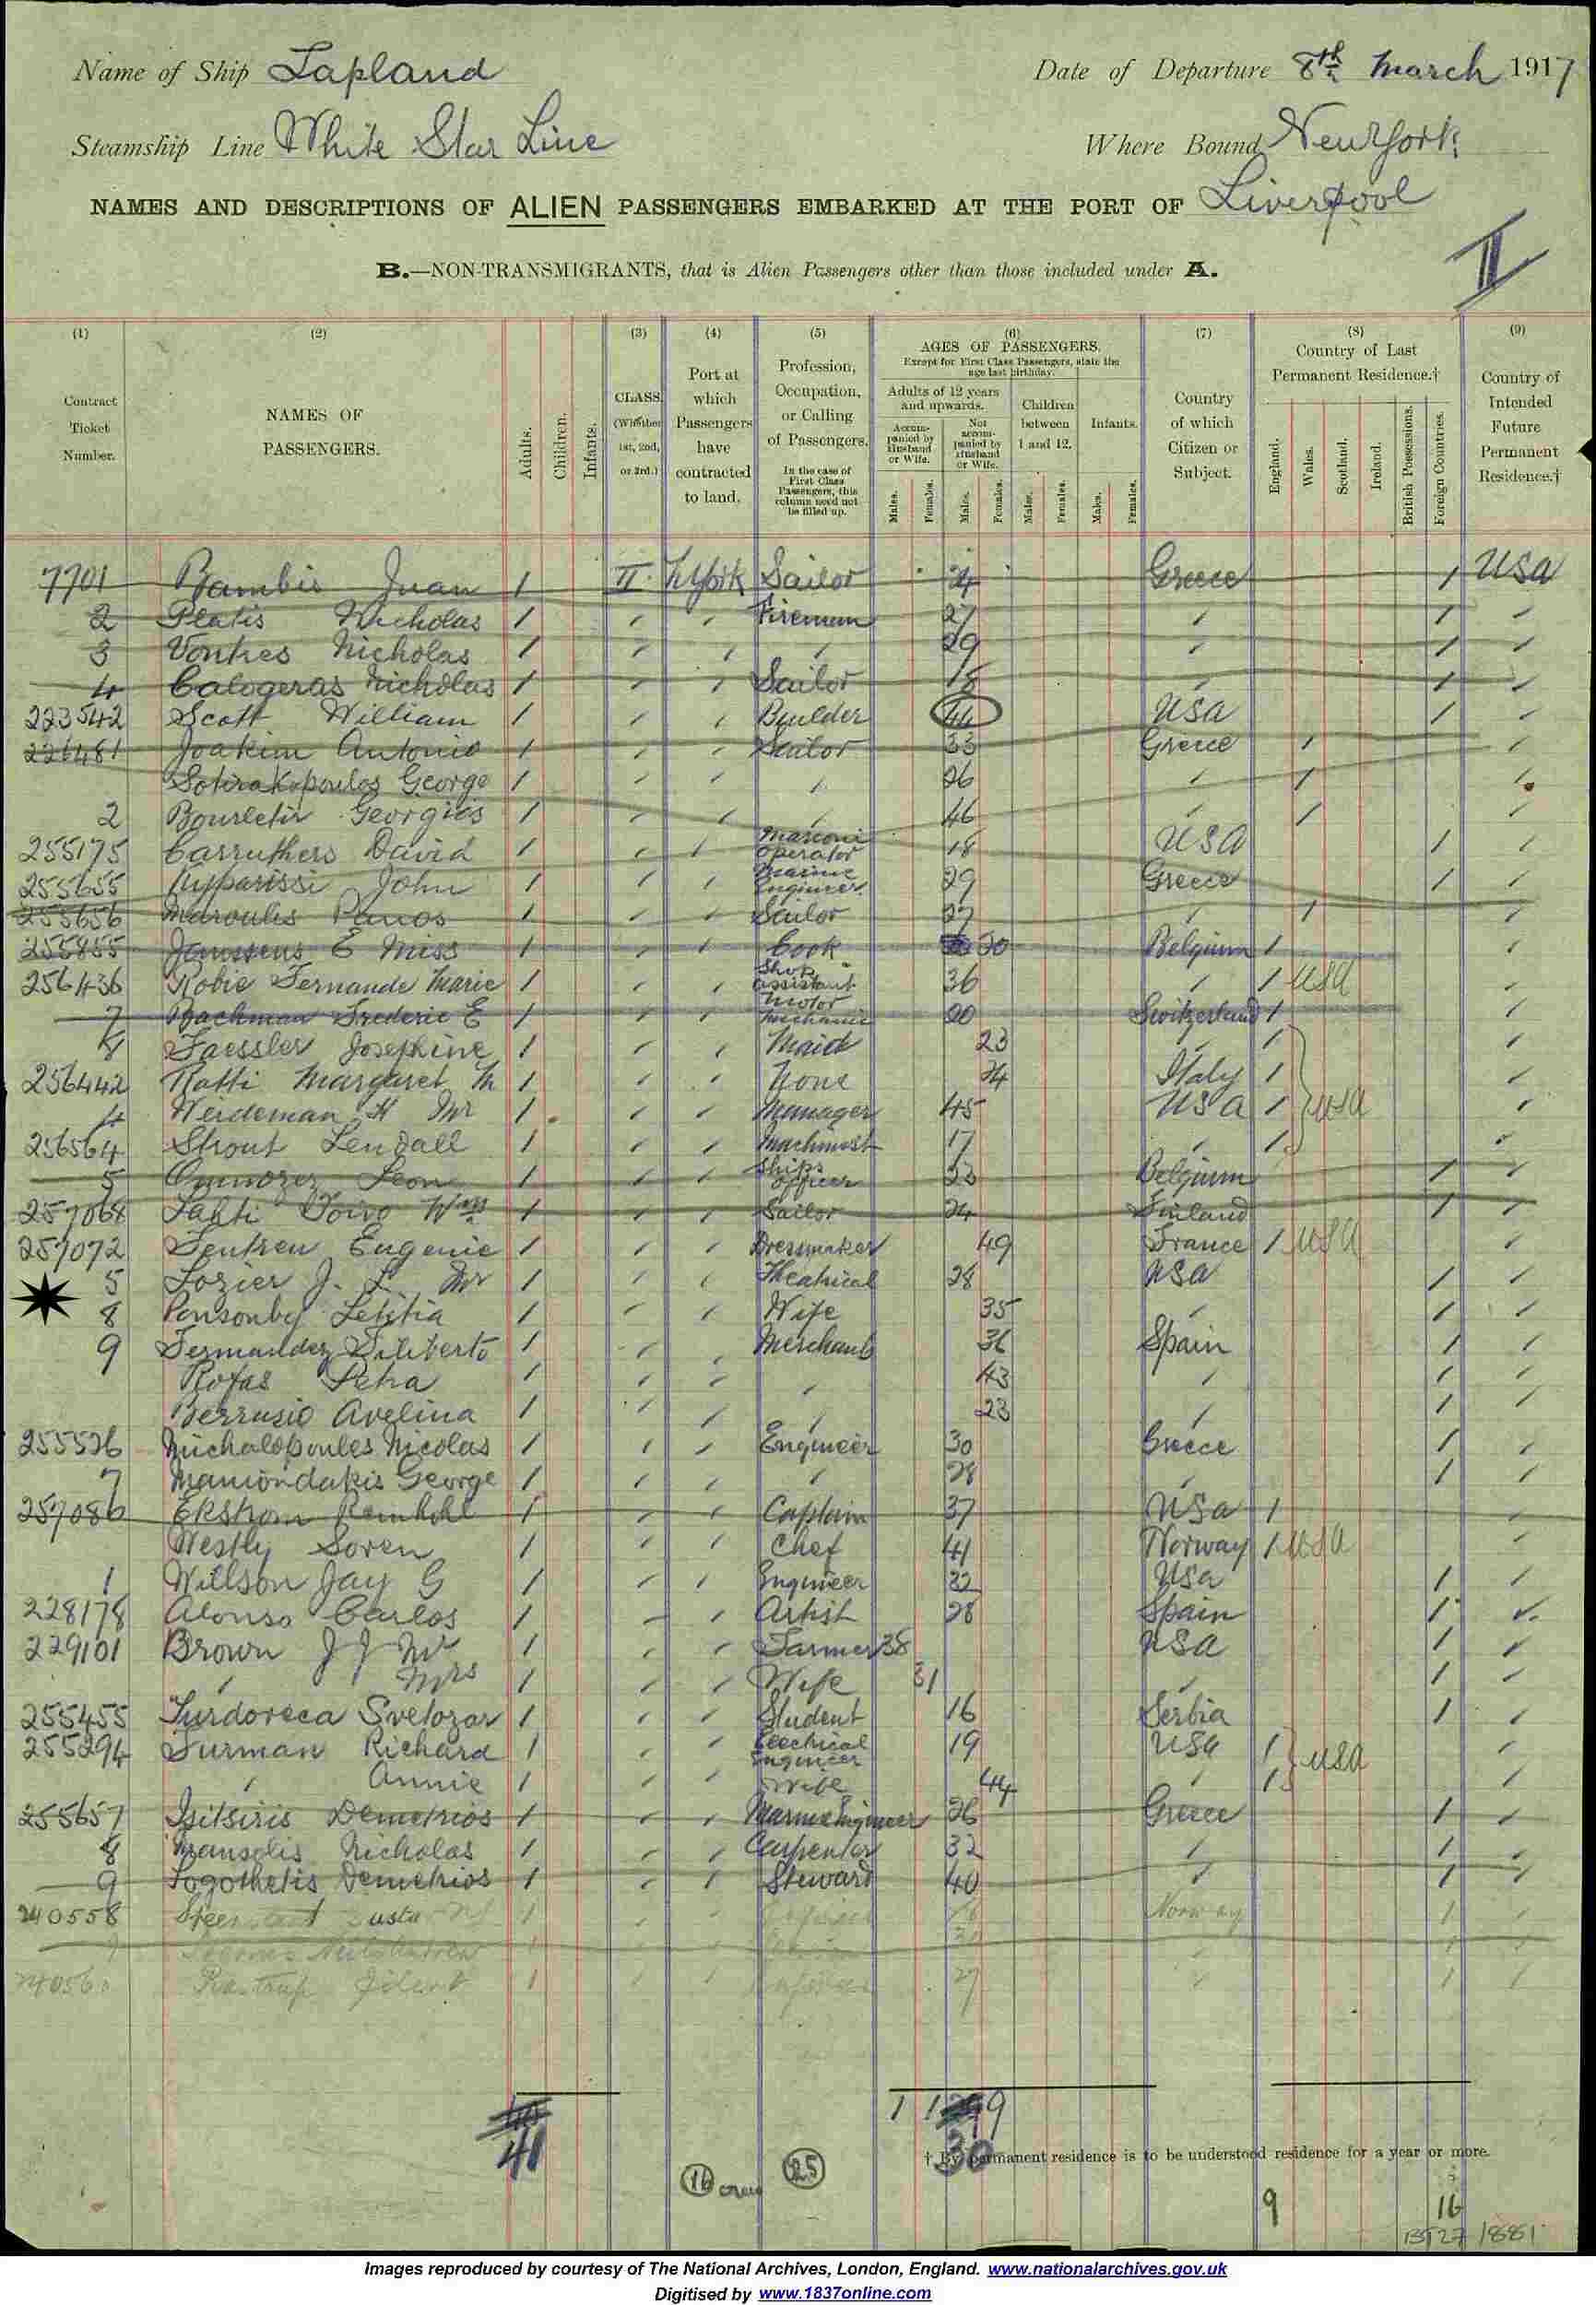 Name of Ship Lapland Date of Departure 8th March 1917
Steamship Line White Star Line Where Bound New York
NAMES AND DESCRIPTIONS OF ALIEN PASSENGERS EMBARKED AT THE PORT OF Liverpool
II
B.—NON-TRANSMIGRANTS, that is Alien Passengers other than those included under A.
(1) (2) (3) (4) (5) (6) (7) (8) (9)
Contract Ticket Number.
NAMES OF PASSENGERS.
Adults.
Children.
Infants.
CLASS. (Whether 1st, 2nd, or 3rd.)
Port at which Passengers have contracted to land.
Profession, Occupation, or Calling of Passengers.
In the case of First Class Passengers, this column need not be filled up.
AGES OF PASSENGERS.
Except for First Class Passengers, state the age last birthday.
Adults of 12 years and upwards.
Accompanied by Husband or Wife.
Not accompanied by Husband or Wife.
Children between 1 and 12.
Infants.
Males. Females. Males. Females. Males. Females. Males. Females.
Country of which Citizen or Subject.
Country of Last Permanent Residence.†
England. Wales. Scotland. Ireland. British Possessions. Foreign Countries.
Country of Intended Future Permanent Residence.†
7701 Bambis Juan 1 II N York Sailor 24 Greece 1 USA
2 Platis Nicholas 1 Fireman 27 1
3 Vontres Nicholas 1 29 1
4 Calogeras Nicholas 1 Sailor 18 1
223542 Scott William 1 Builder 44 USA 1
226481 Joakim Antonio 1 Sailor 33 Greece 1
Sotirakopoulos George 1 26 1
2 Georgios 1 46 1
255175 Carruthers David 1 Marconi Operator 18 USA 1
255655 Kyparissi John 1 Marine Engineer 29 Greece 1
255656 Maroulis Panos 1 Sailor 27 1
255855 Janssens E Miss 1 Cook 20 Belgium 1
256436 Robie Fernande Marie 1 Shop assistant 36 1 USA
7 Bachman Frederic E 1 Motor mechanic 20 Switzerland 1
8 Faessler Josephine 1 Maid 23 1
256442 Ratti Margaret M 1 None 24 Italy 1
4 Weideman H Mr 1 Manager 45 USA 1 USA
256564 Strout Lendall 1 Machinist 17 1
5 Leon 1 Ships officer 23 Belgium 1
257068 Lahti Toivo Wm 1 Sailor 24 Finland 1
257072 Eugenie 1 Dressmaker 49 France 1 USA
5 Lozier J. L. Mr 1 Theatrical 28 USA 1
8 Ponsonby Letitia 1 Wife 35 1
9 Fernandez Filiberto 1 Merchant 36 Spain 1
Rofas Petra 1 43 1
Berrusio Avelina 1 23 1
255526 Michalopoules Nicolas 1 Engineer 30 Greece 1
7 Mamondakis George 1 28 1
257086 Ekstrom 1 Captain 37 USA 1
Westly Soren 1 Chef 41 Norway 1 USA
1 Willson Jay G 1 Engineer 32 USA 1
228178 Alonso Carlos 1 Artist 28 Spain 1
229101 Brown J J Mr 1 Farmer 38 USA 1
Mrs 1 Wife 31 1
255455 Svetozar 1 Student 16 Serbia 1
255294 Furman Richard 1 Electrical Engineer 19 USA 1 USA
Annie 1 Wife 44 1
255657 Isitsiris Demetrios 1 Marine Engineer 26 Greece 1
8 Mansolis Nicholas 1 Carpenter 32 1
9 Logothetis Demetrios 1 Steward 40 1
240558 1 Norway 1
1 1
1 27 1
1 1 9
41 30
16 crew 25
† By permanent residence is to be understood residence for a year or more.
9 16
BT27 /881
Images reproduced by courtesy of The National Archives, London, England. www.nationalarchives.gov.uk
Digitised by www.1837online.com